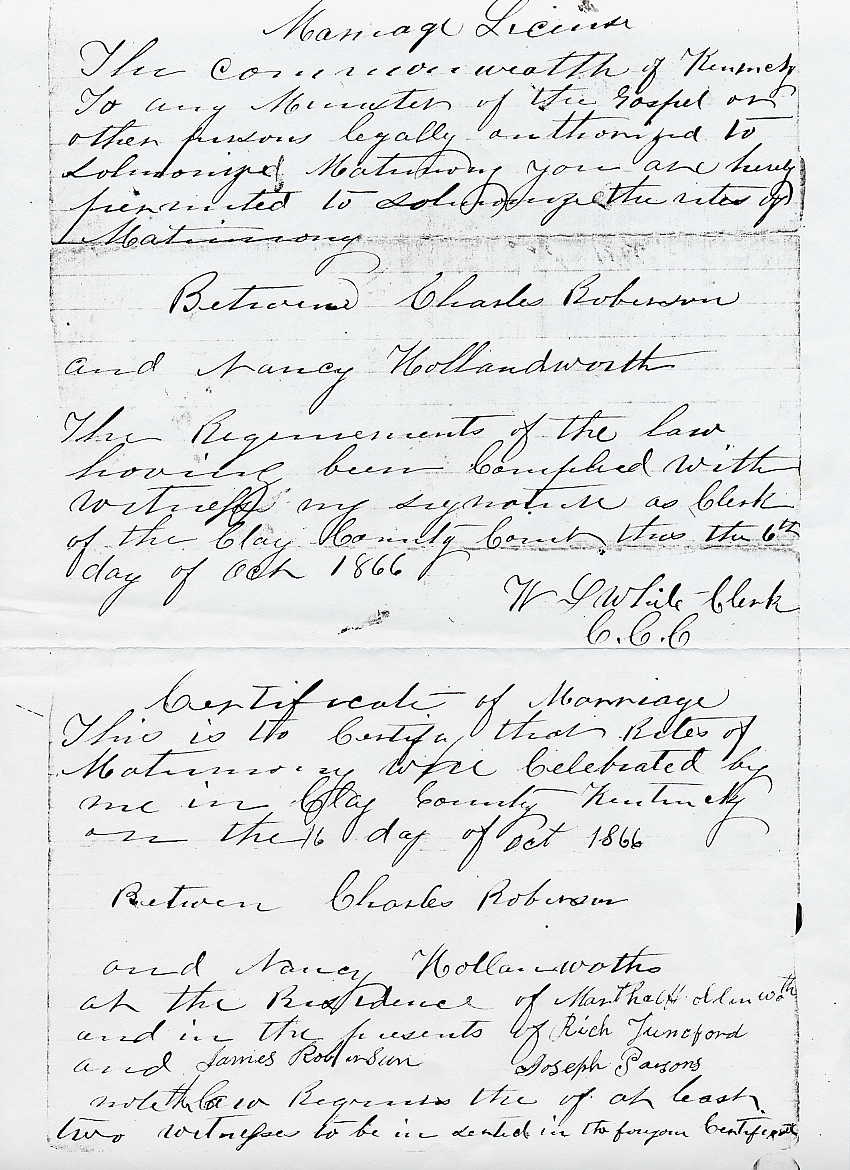 Marriage License
The Commonwealth of Kentucky
To any Minister of the Gospel or
other persons legally authorized to
Solmonize Matrimony you are hereby
permited to Solmonize the rites of
Matrimony
Between Charles Robinson
and Nancy Hollandworth
The Requirements of the law
having been Complied with
witness my signature as Clerk
of the Clay County Court this the 6th
day of Oct 1866
W L White Clerk
C.C.C
Certificate of Marriage
This is to Certify that Rites of
Matrimony were Celebrated by
me in Clay County Kentucky
on the 16 day of Oct 1866
Between Charles Robinson
and Nancy Hollanwoths
at the Residence of Martha Hollinwoth
and in the presents of Rich
and James Robinson Joseph Parsons
note the Law Requires the of at least
two witnesses to be in in the